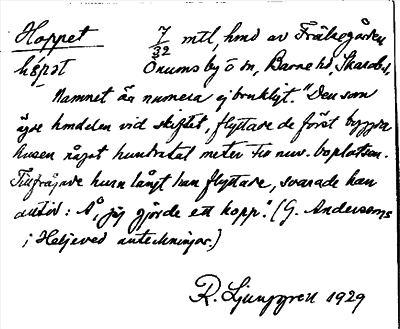 Hoppet 7/32 mtl, hmd av Frälsegården
hɵpət Önums by o sn, Barne hd, Skarab. l.
Namnet är numera ej brukligt. "Den som
ägde hmdelen vid skiftet, flyttade de först byggda
husen något hundratal meter till nuv. boplatsen.
Tillfrågade hurn långt han flyttade, svarade han
alltid: Å, jag gjorde ett hopp." (G. Anderssons
i Heljeved anteckningar.)
R. Ljunggren 1929